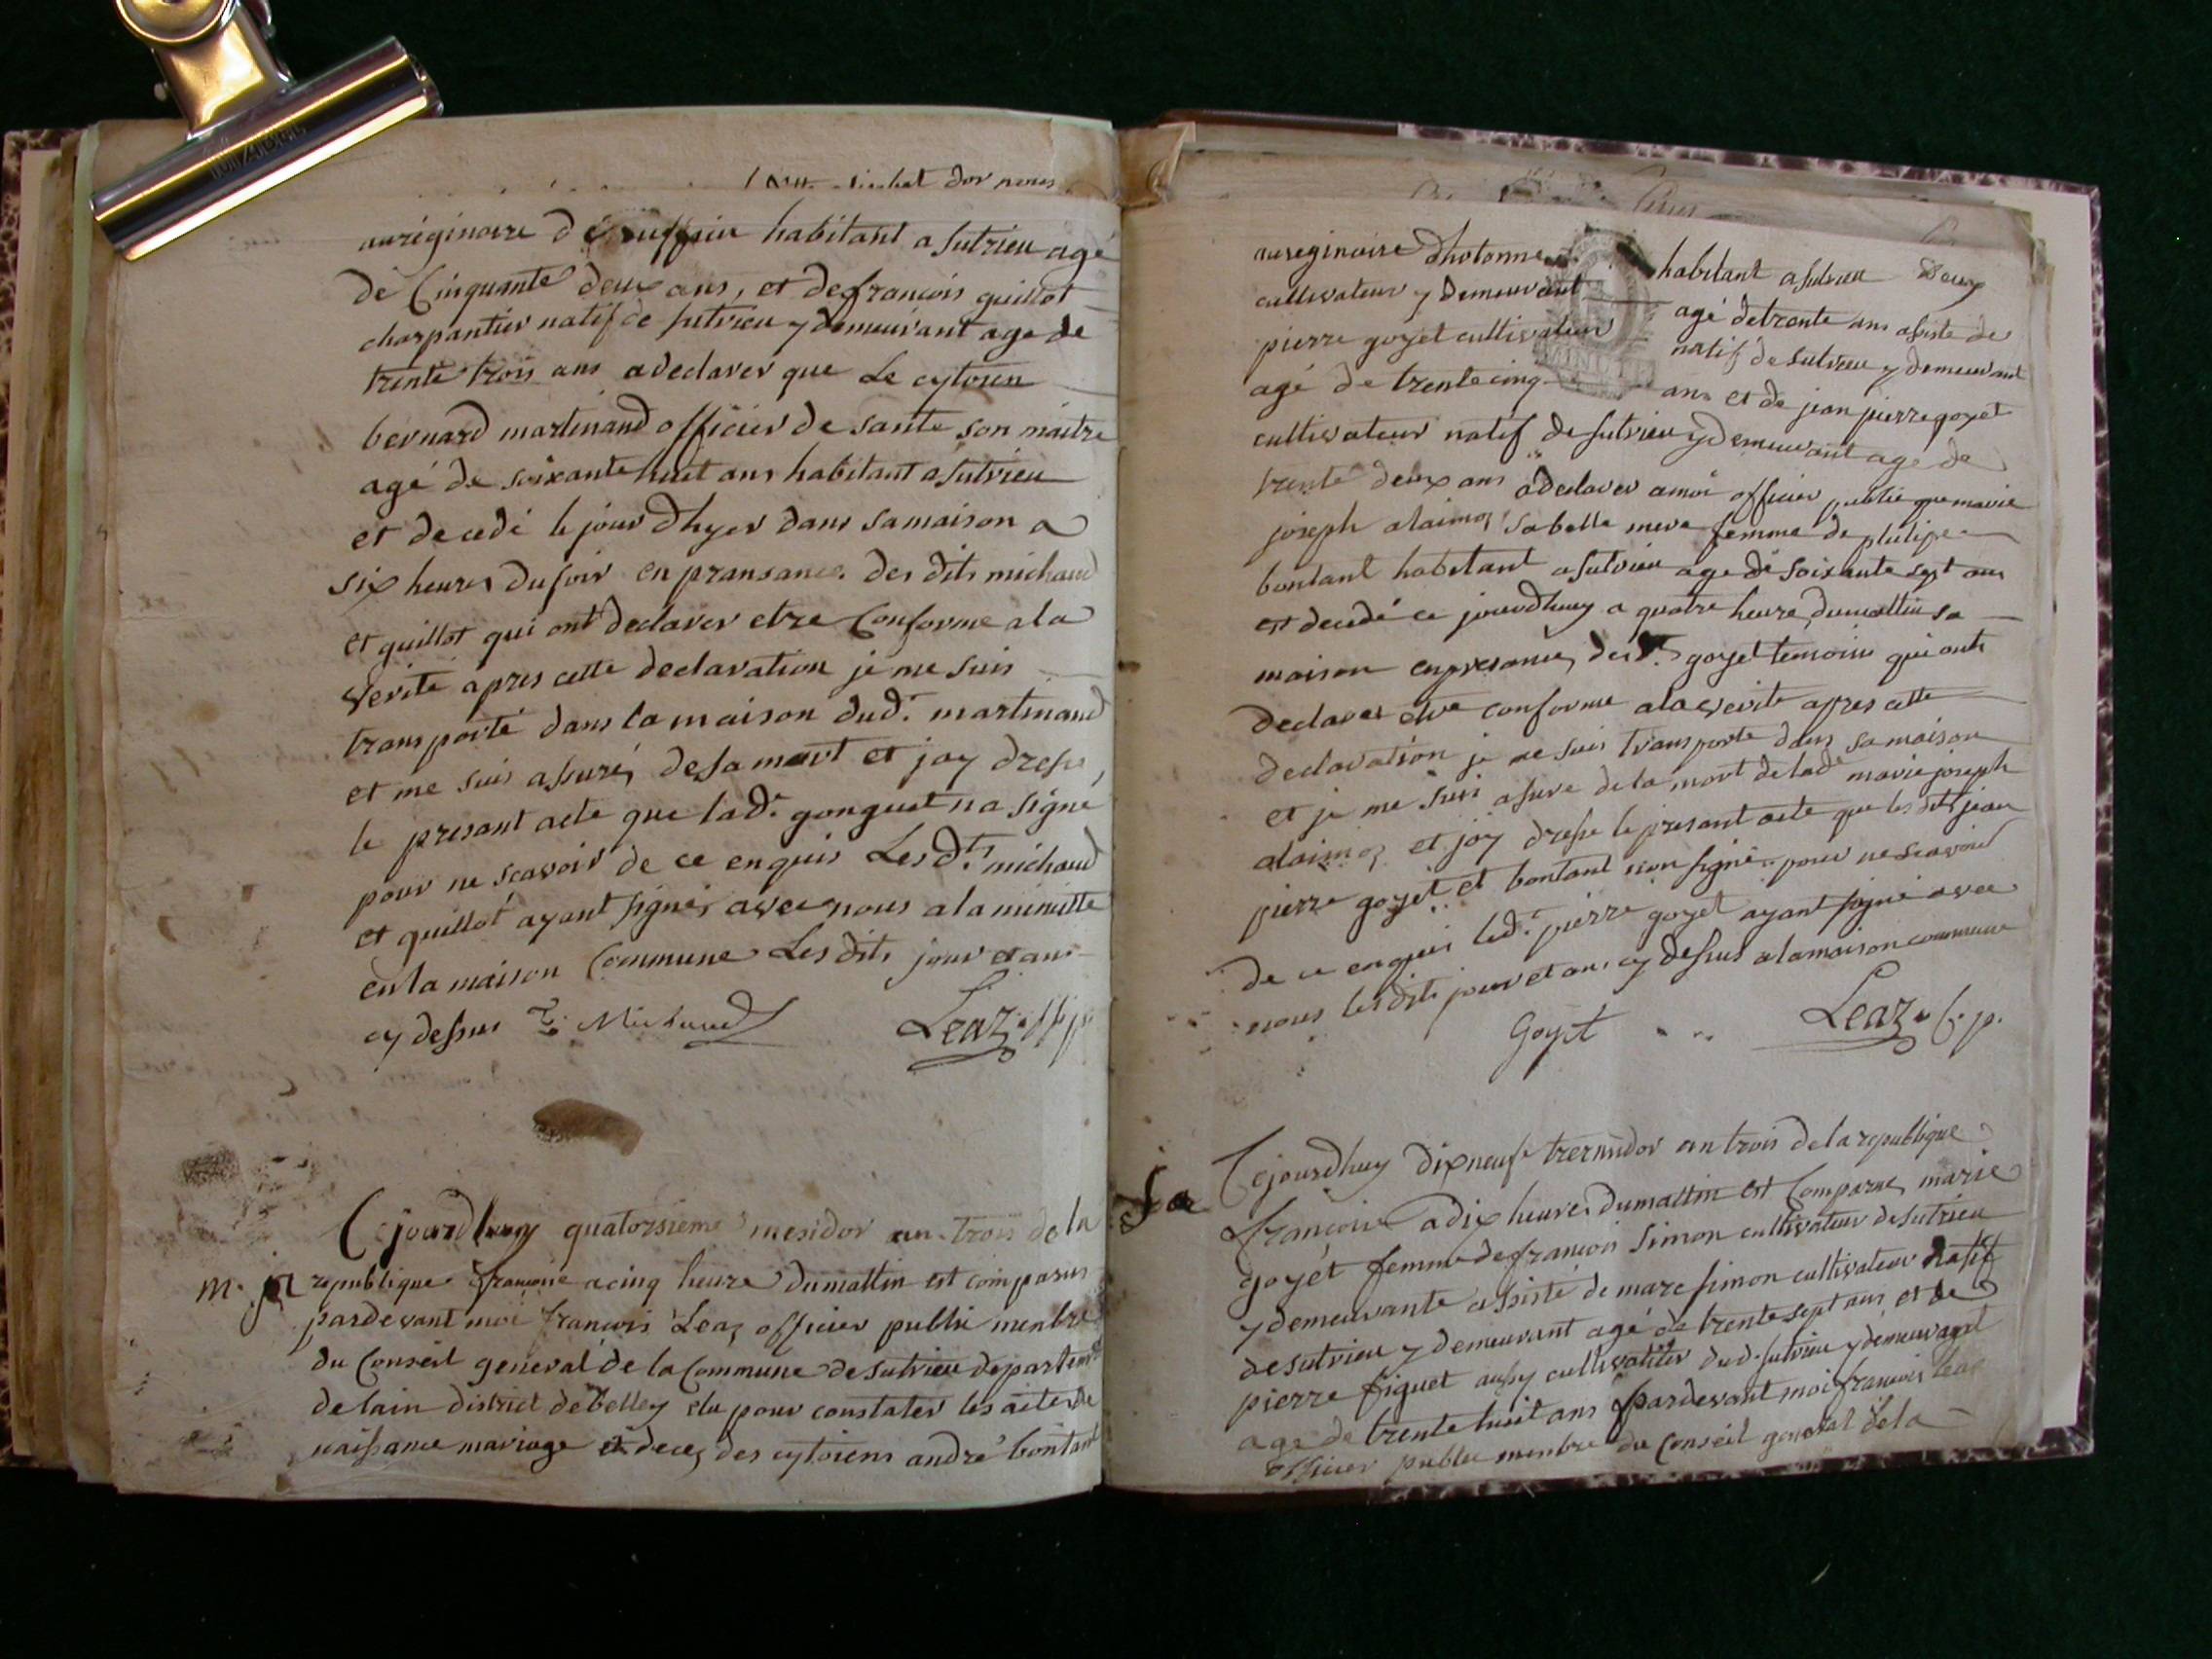 auréginoire de ruffieu habitant a sutrieu agé
de Cinquante deux ans, et de francois guillot
charpantier natif de sutrieu y demeurant age de
trente trois ans a declarer que Le cytoien
bernard martinand officier de sante son maitre
agé de soixante huit ans habitant a sutrieu
et decedé le jour dhyer dans sa maison a
six heures du soir en pransance des dits michaud
et guillot qui ont declarer etre Conforme a la
verité apres cette declaration je me suis
transporté dans la maison dud.t martinand
et me suis assuré, de sa mort et jay dresse,
le presant acte que lad.e gonguet na signé
pour ne scavoir de ce enquis Les d.ts michaud
et guillot ayant signés avec nous a la minutte
en la maison Commune Les dits jour et an
cy dessus Michaud Leaz off p
Cejourdhuy quatorsieme mesidor an trois de la
m. j a republique francoise a cinq heure du mattin est comparus
pardevant moi francois Leaz officier public menbre
du Conseil general de la Commune de sutrieu departemt
de lain district de belley elu pour constater les actes de
naissance mariage et deces des cytoiens andré bontant
aureginaire dhotonne habitant a sutrieu Deux
cultivateur y demeurant agé de trante ans asisté de
pierre goyet cultivateur natif de sutrieu y demeurant
agé de trente cinq ans et de jean pierre goyet
cultivateur natif de sutrieu y demeurant agé de
trente deux ans a declarer a moi officier public que marie
joseph alaimoz sa belle mere femme de philipe
bontant habitant a sutrieu age de soixante sept ans
est decedé ce jourdhuy a quatre heure du mattin sa
maison en presance des d.ts goyet temoins qui ont
declarer etre conforme a la verite apres cette
declaration je me suis transporte dans sa maison
et je me suis assure de la mort de lade marie joseph
alaimoz et jay dresse le presant acte que les dits jean
pierre goyet et bontant non signé pour ne scavoir
de ce enquis led.t pierre goyet ayant signé avec
nous les dits jour et an cy dessus a la maison commune
Goyet Leaz o f. p.
Cejourdhuy dix neuf termidor an trois de la republique
francoise a dix heures du mattin est Comparue marie
goyet femme de francois simon cultivateur de sutrieu
y demeurante assisté de marc simon cultivateur natif
de sutrieu y demeurant agé de trente sept ans et de
pierre figuet aussy cultivateur dud. sutrieu y demeurant
age de trente huit ans pardevant moi francois leaz
officier public menbre du Conseil general de la